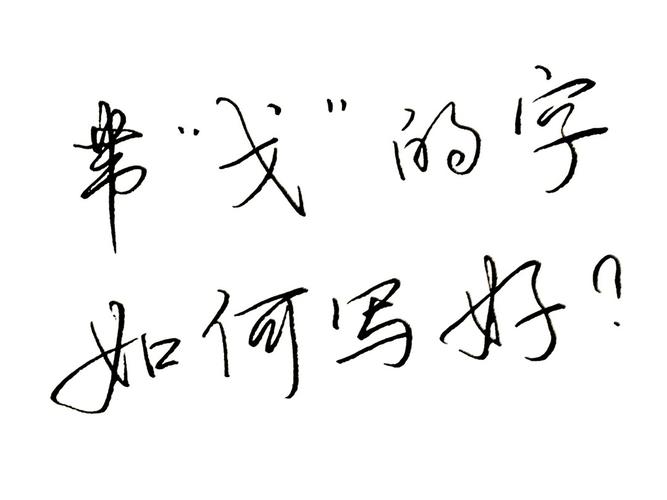 带"戈"的字
如何写好?